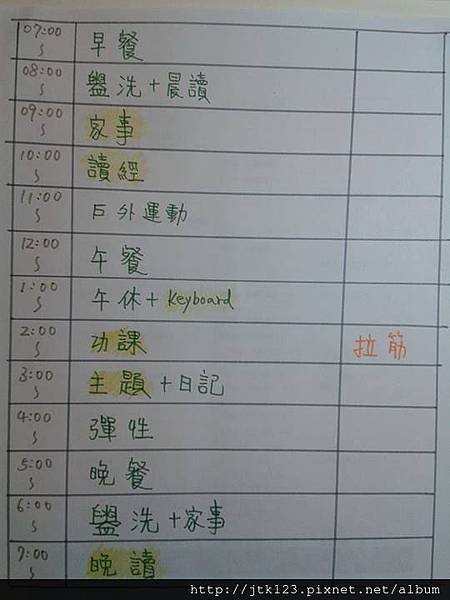 07:00
~
早餐
08:00
~
盥洗+晨讀
09:00
~
家事
10:00
~
讀經
11:00
~
戶外運動
12:00
~
午餐
1:00
~
午休+Keyboard
2:00
~
功課
拉筋
3:00
~
主題+日記
4:00
~
彈性
5:00
~
晚餐
6:00
~
盥洗+家事
7:00
~
晚讀
http://jtk123.pixnet.net/album